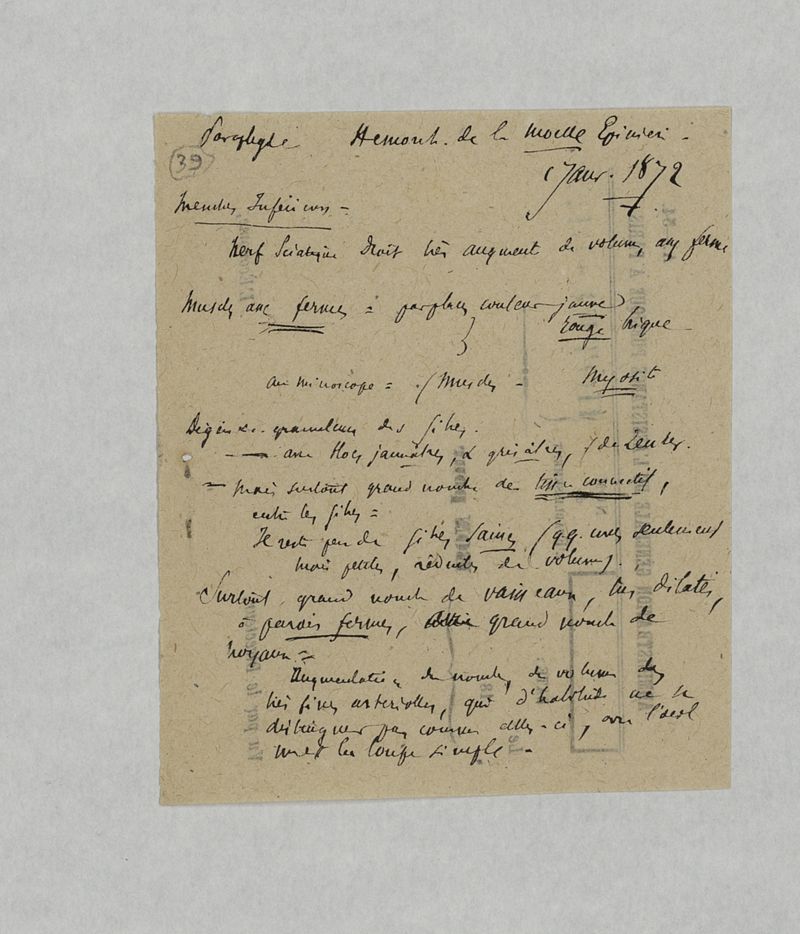 Paraplegie Hemorrh. de la moelle Epinière -
39
Janv. 1872
Membres Inférieurs -
Nerf Sciatique Droit très augmenté de volume, assez ferme
Muscles assez fermes = par places couleur jaune,
rouge brique -
au microscope = Muscles - Myosite
Dégén. graisseuse des fibres.
- avec blocs jaunâtres, & grisâtres, de Zenker.
- mais surtout grand nombre de tissu connectif,
entre les fibres =
Il reste peu de fibres saines (q.q. unes seulement
mais petites, réduites de volume).
Surtout, grand nombre de vaisseaux, très dilatés,
à parois fermes, grand nombre de
noyaux =
Augmentation de nombre, de volume des
très fines arterioles, qui d'habitude ne se
distinguent pas comme celles-ci, avec l'oeil
nu et la loupe simple -